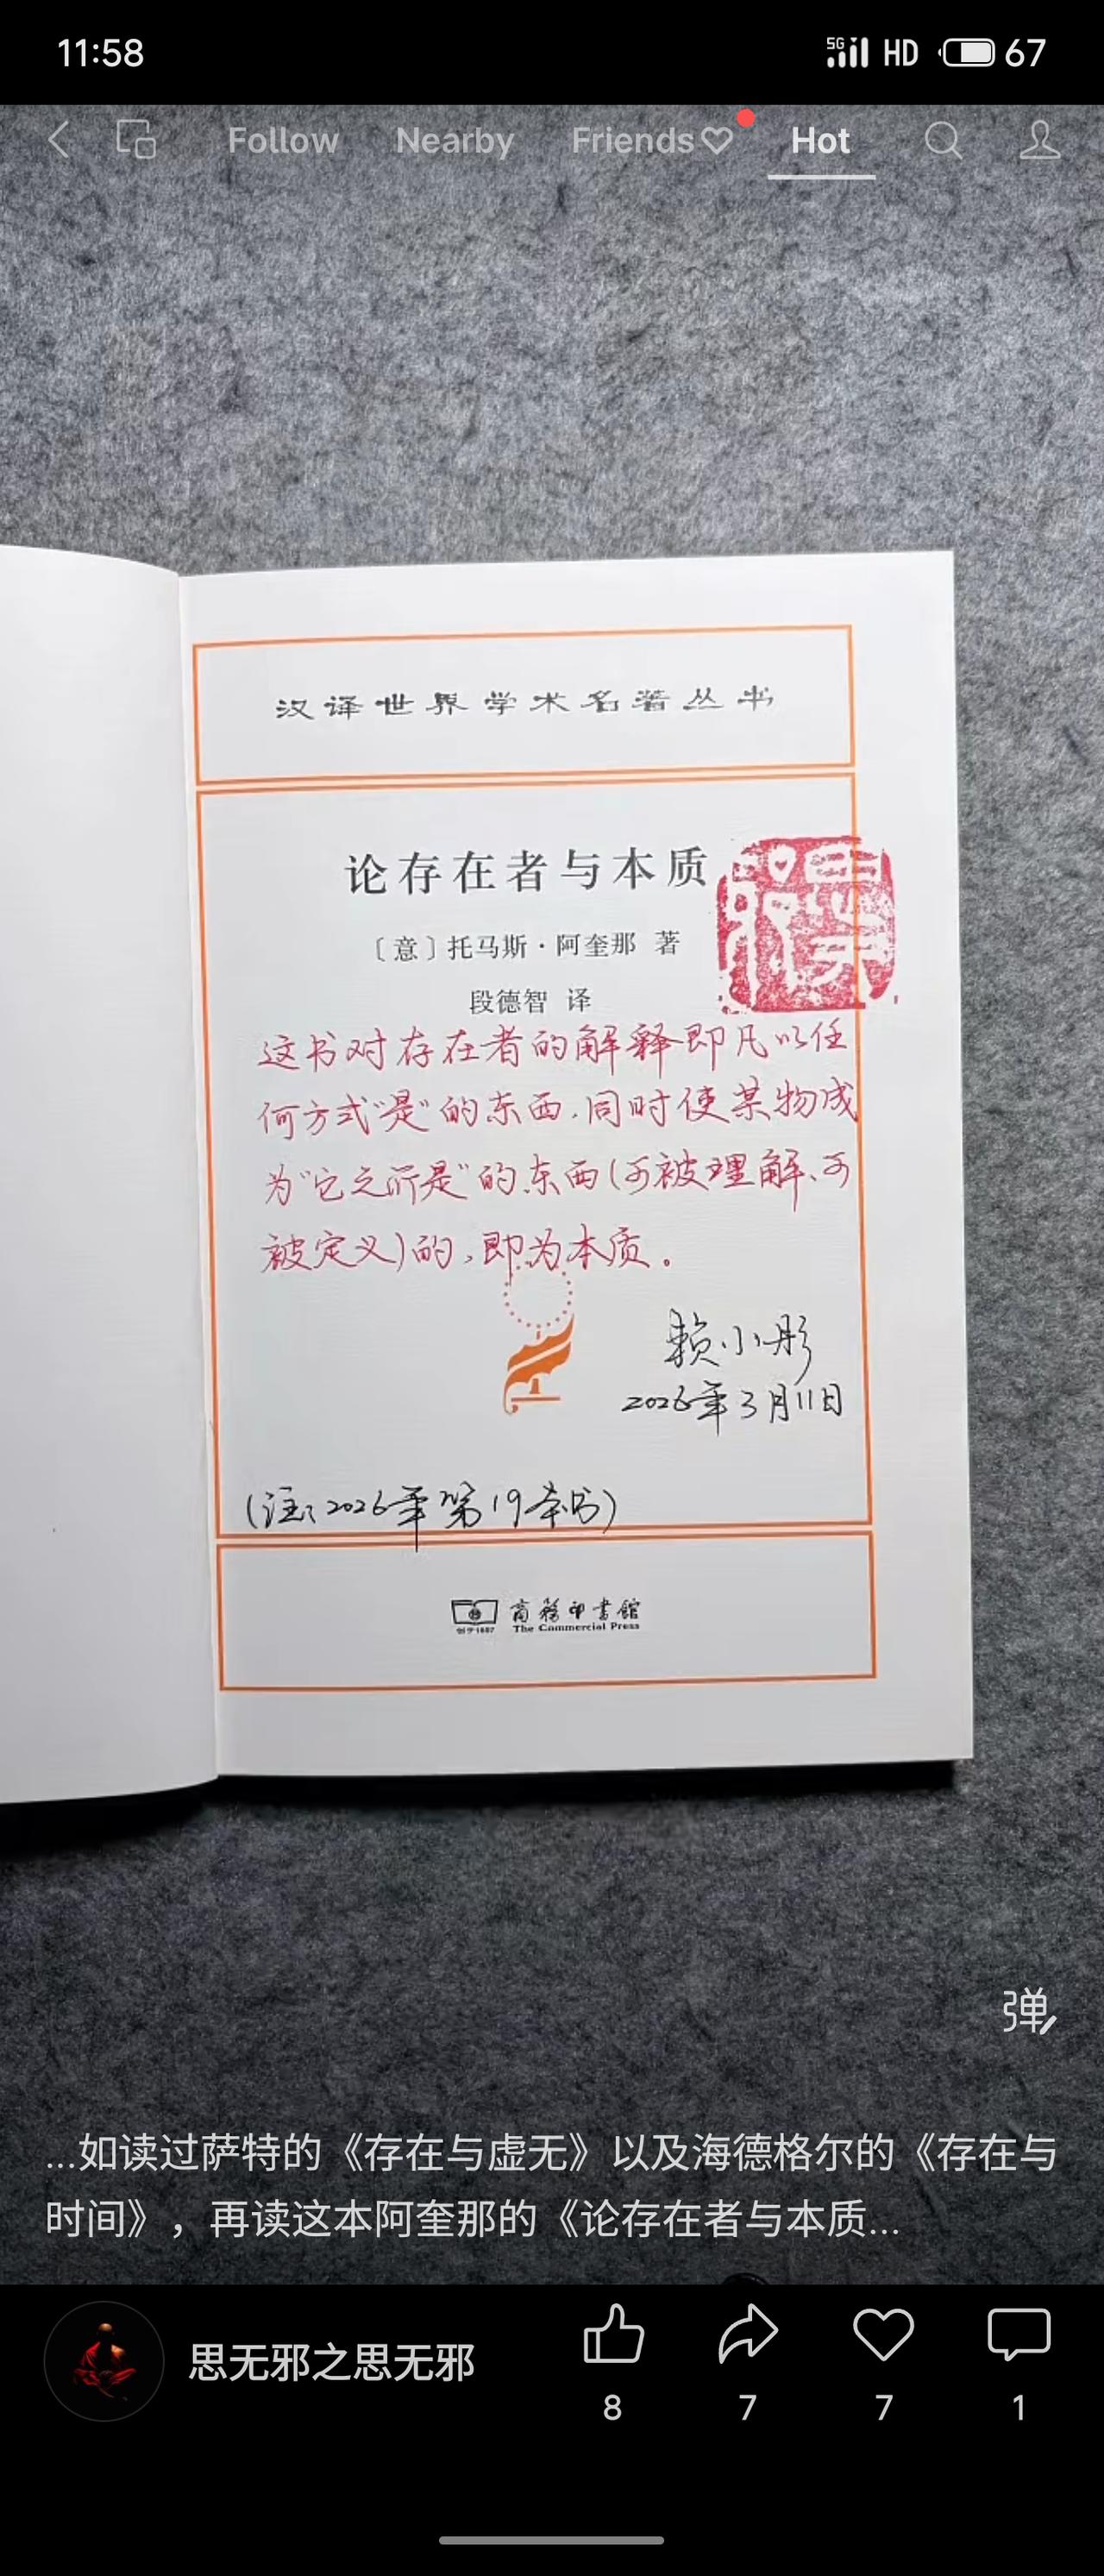 11:58
5G HD 67
Follow Nearby Friends Hot
汉译世界学术名著丛书
论存在者与本质
〔意〕托马斯·阿奎那 著
段德智 译
这书对存在者的解释即凡以任
何方式“是”的东西.同时使某物成
为“它之所是”的东西(可被理解、可
被定义)的,即为本质。
赖小彤
2026年3月11日
(注:2026年第19本书)
商務印書館
The Commercial Press
弹
...如读过萨特的《存在与虚无》以及海德格尔的《存在与
时间》，再读这本阿奎那的《论存在者与本质...
思无邪之思无邪
8 7 7 1